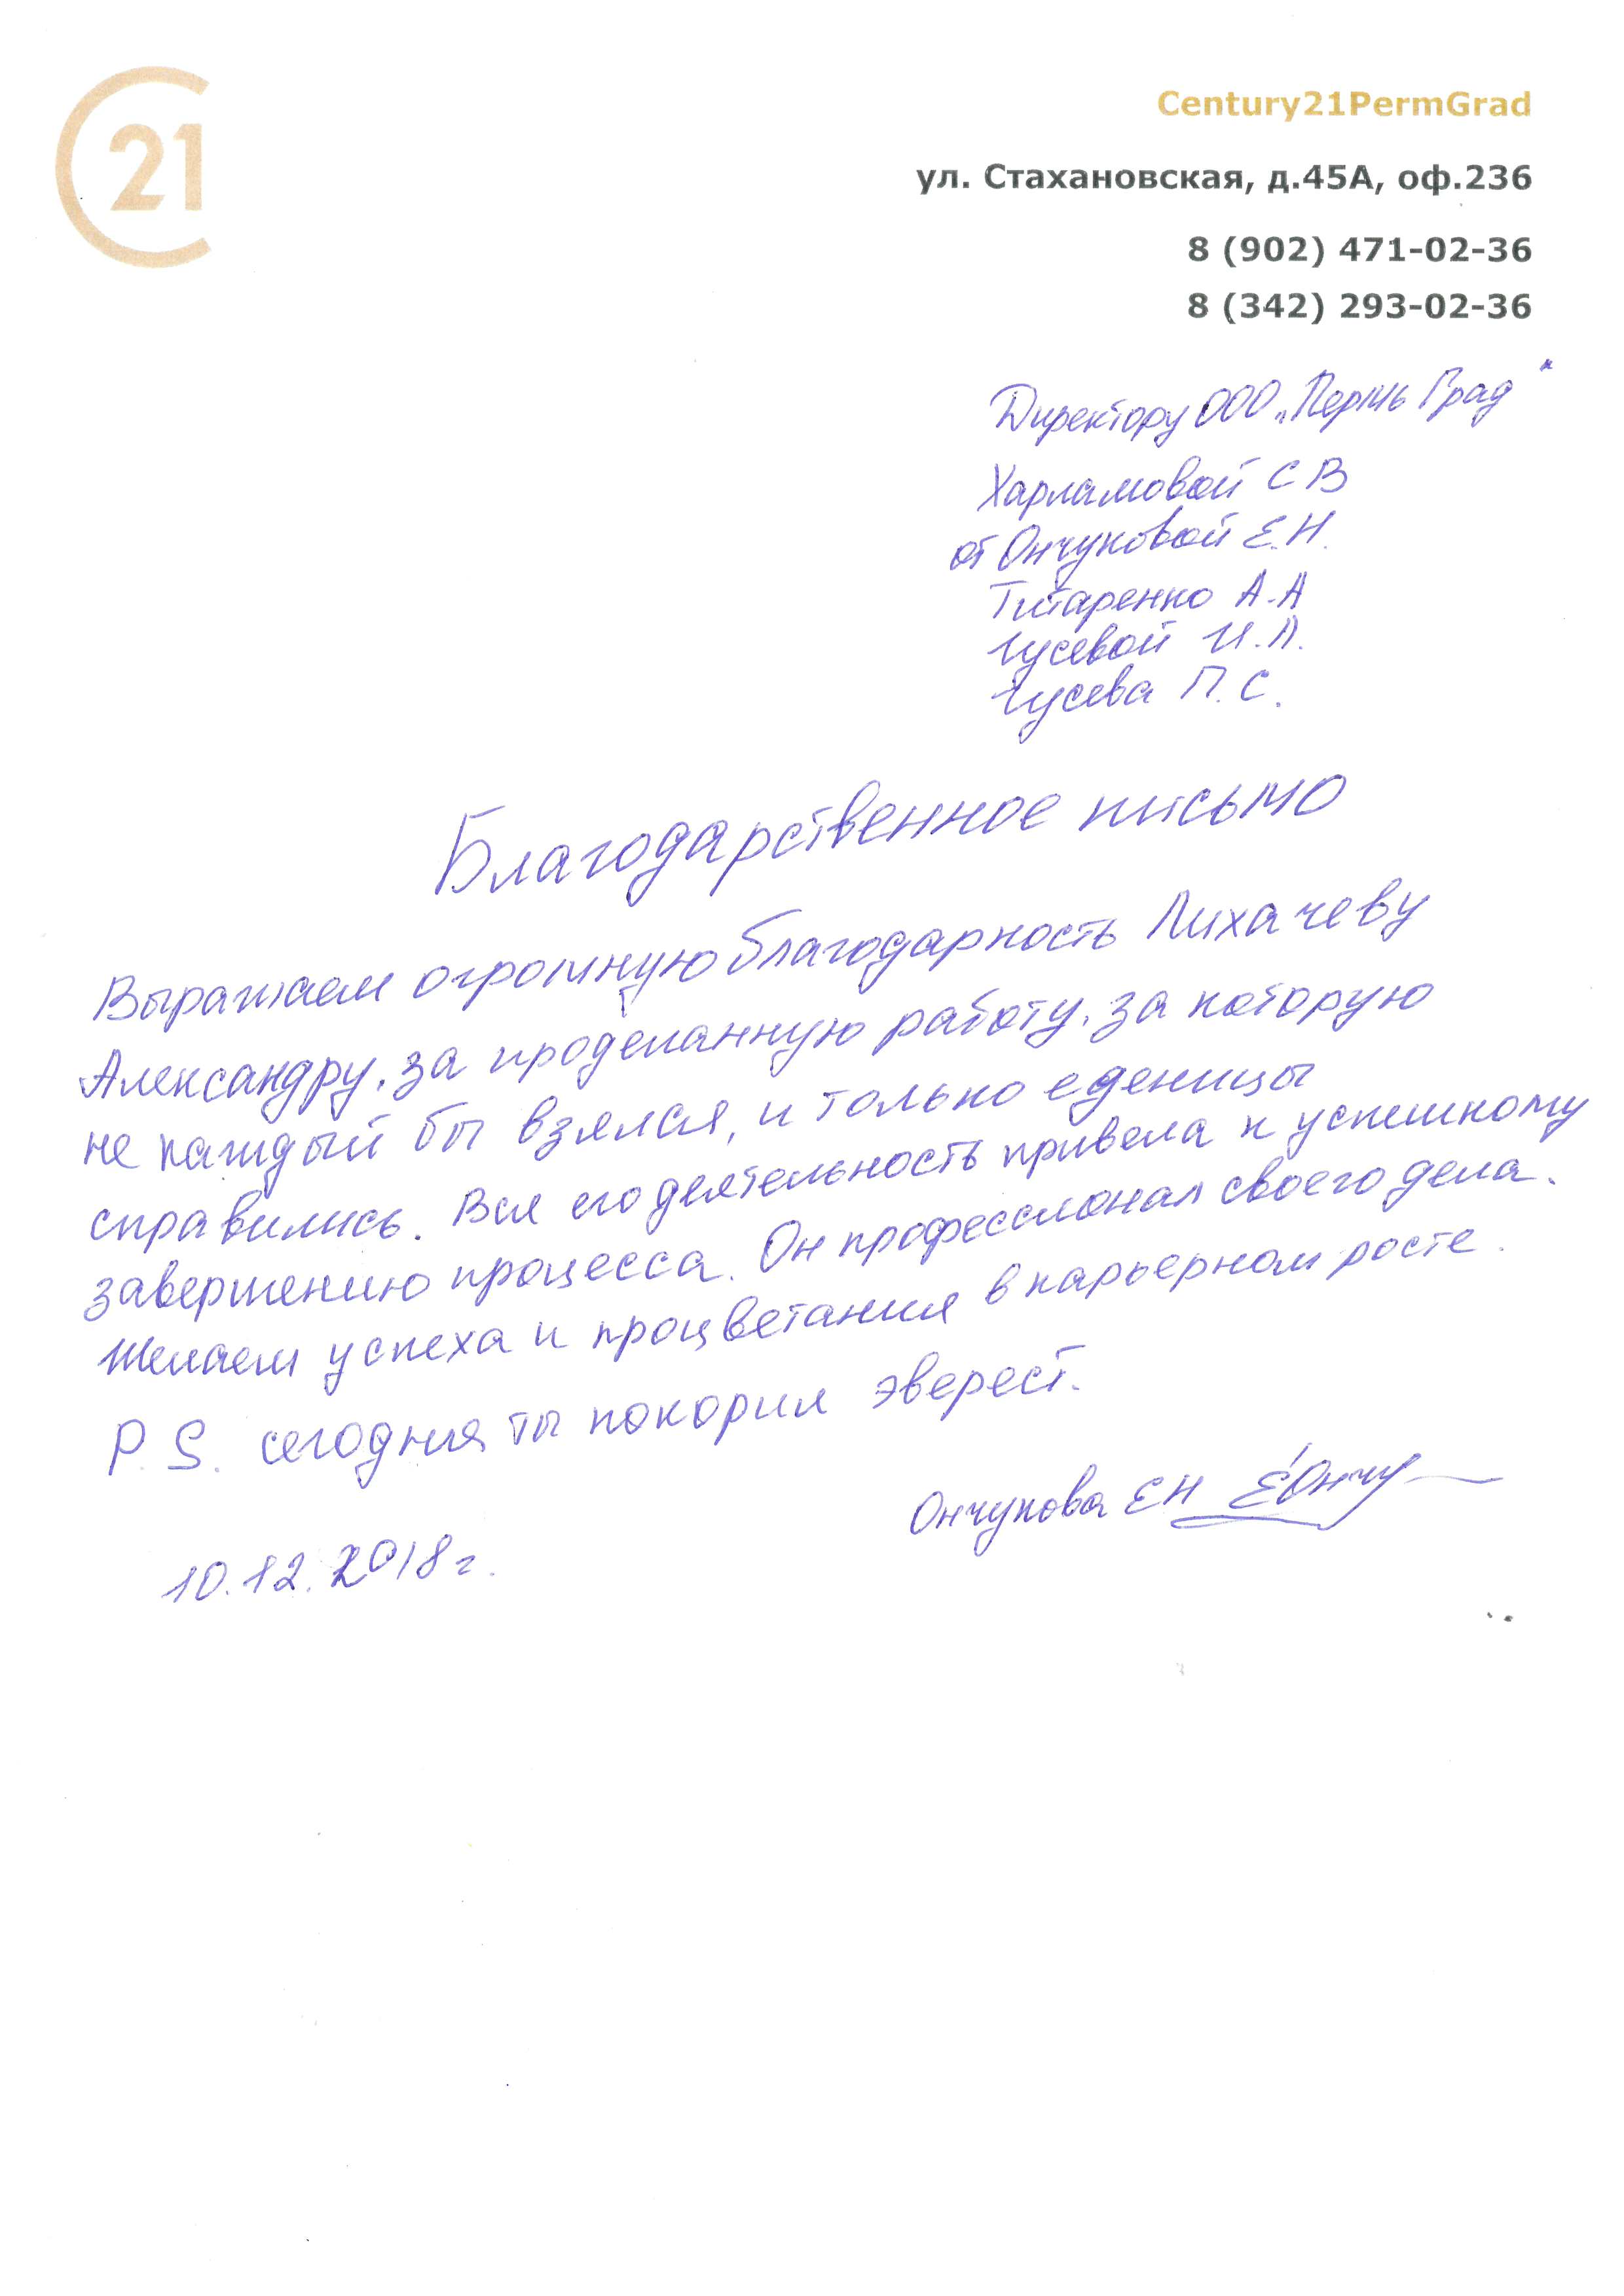 C21
Century21PermGrad
ул. Стахановская, д.45А, оф.236
8 (902) 471-02-36
8 (342) 293-02-36
Директору ООО „Пермь Град"
Харламовой С В
от Ончуковой Е.Н.
Титаренко А.А
Гусевой И.Л.
Гусева П.С.
Благодарственное письмо
Выражаем огромную благодарность Лихачеву
Александру, за проделанную работу, за которую
не каждый бы взялся, и только еденицы
справились. Вся его деятельность привела к успешному
завершению процесса. Он профессионал своего дела.
Желаем успеха и процветания в карьерном росте.
P.S. сегодня ты покорил эверест.
Ончукова ЕН ЕОнчу
10.12.2018г.